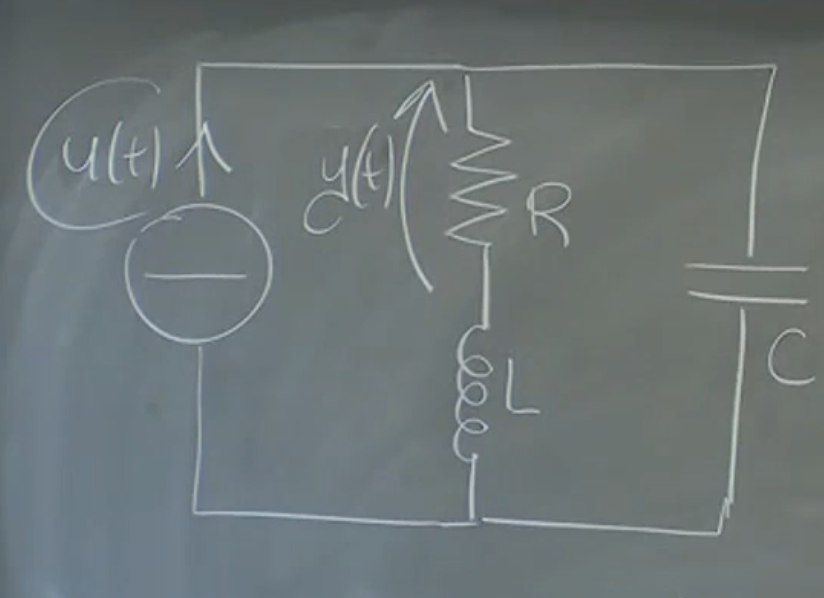 u(t)
y(t)
R
L
C